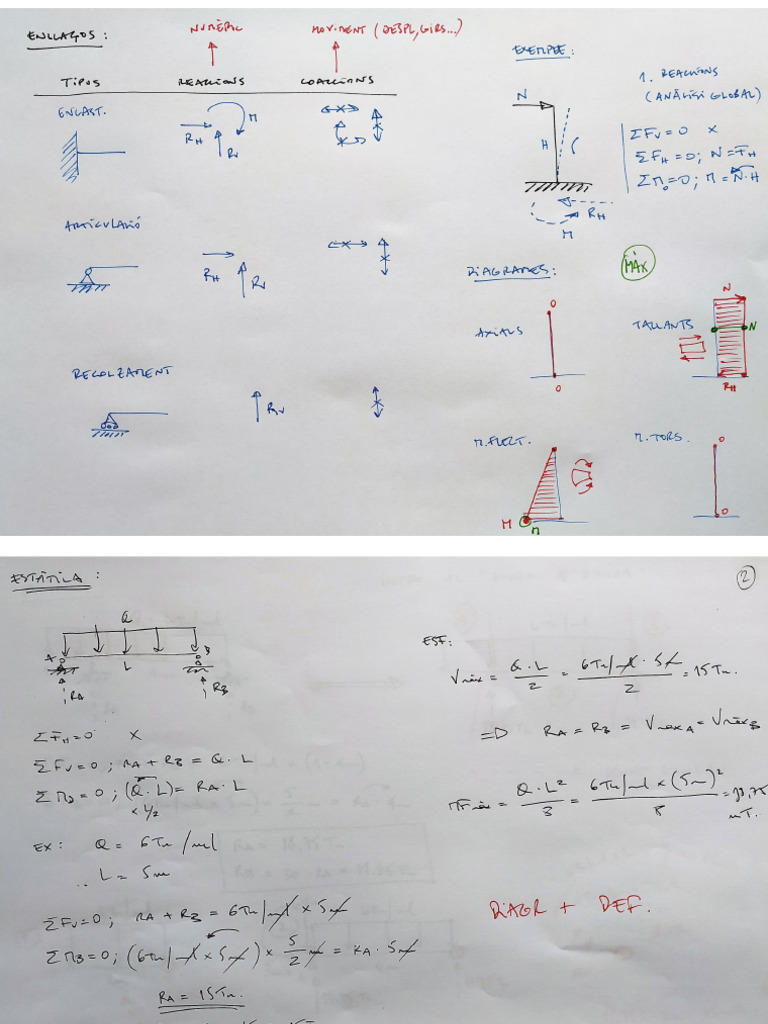 ENLLAÇOS:
NUMÈRIC
MOVIMENT (DESPL, GIRS...)
TIPOS
REACCIONS
COACCIONS
ENCAST.
M
RH
RV
ARTICULACIÓ
RH
RV
RECOLZAMENT
RV
EXEMPLE:
N
H
RH
M
1. REACCIONS
(ANÀLISI GLOBAL)
ΣFV=0 X
ΣFH=0; N=FH
ΣMo=0; M=N·H
DIAGRAMES:
MÀX
AXIALS
0
0
TALLANTS
N
N
RH
M. FLECT.
M
M
M. TORS.
0
0
ESTÀTICA:
2
Q
A
B
L
RA
RB
ΣFH=0 X
ΣFV=0; RA+RB=Q·L
ΣMB=0; (Q·L)=RA·L
× L/2
EX: Q= 6Tn/ml
L= 5m
ΣFV=0; RA+RB=6Tn/ml×5m
ΣMB=0; (6Tn/ml×5m)×5/2 m=RA·5m
RA=15Tn.
ESF:
Vmàx= Q·L/2 = 6Tn/ml·5m/2 =15Tn.
=D RA=RB=VmàxA=VmàxB
MFmàx= Q·L²/8 = 6Tn/ml×(5m)²/8 =18,75
mT.
DIAGR + DEF.